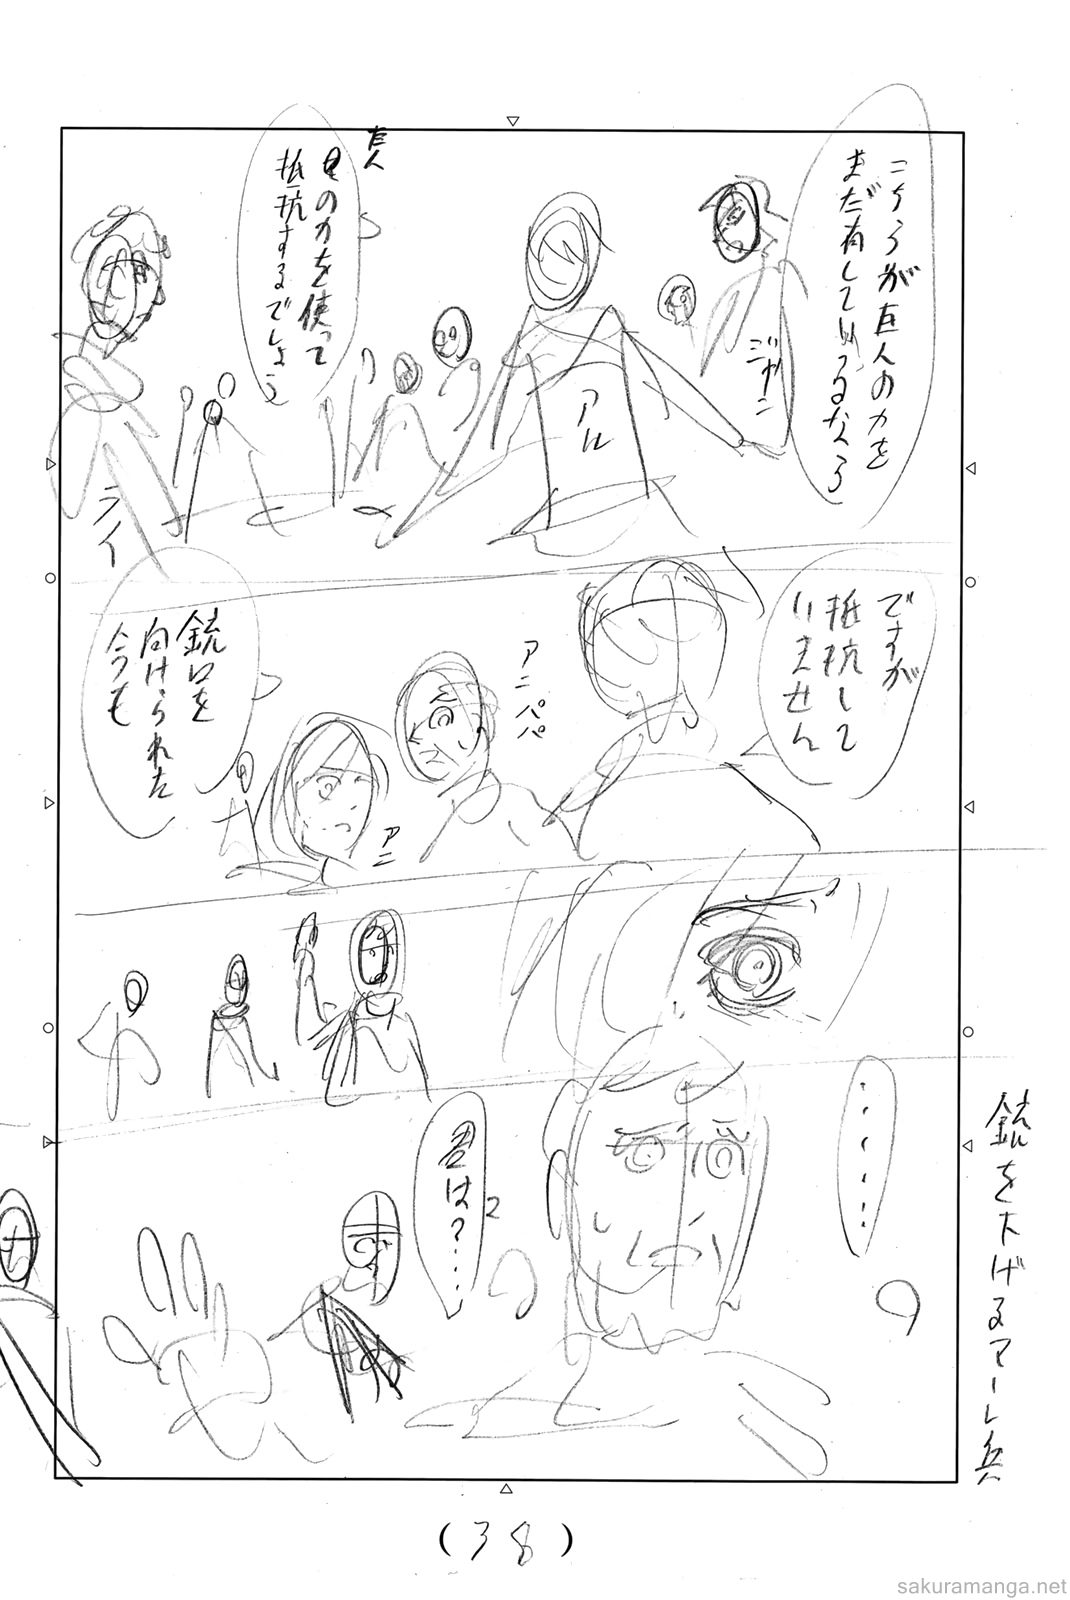 こちらが巨人の力を
まだ有しているなら
ジャン
アル
巨人
の力を使って
抵抗するでしょう
ライ
ですが
抵抗して
いません
アニパパ
アニ
銃口を
向けられた
今も
・・・・・・
君は?・・・・
銃を下げるマーレ兵
(38)
sakuramanga.net